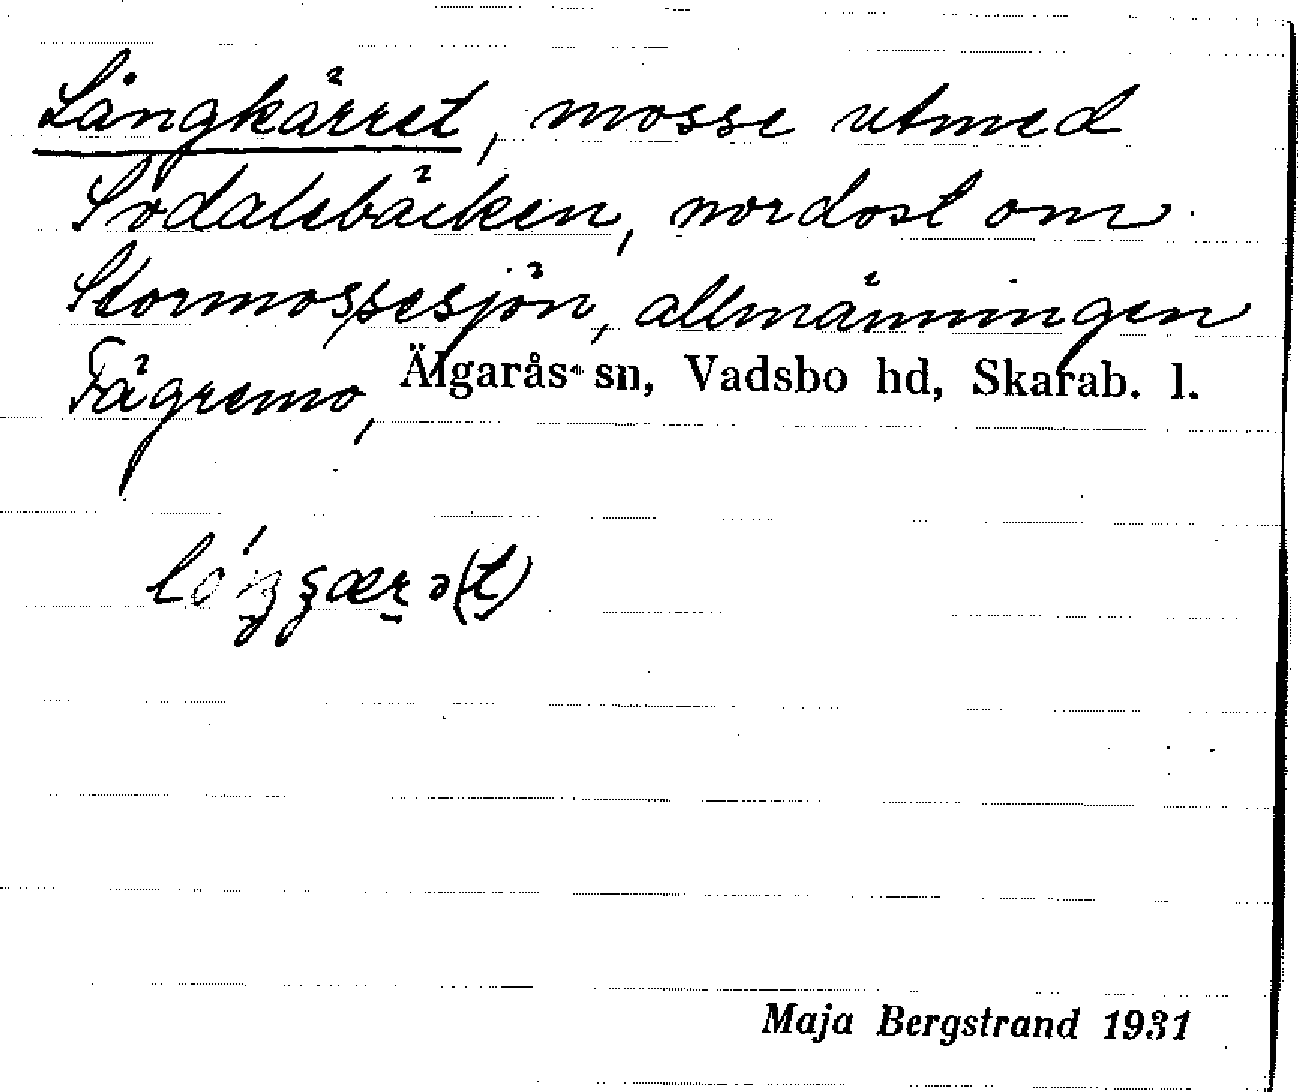 Långkärret, mosse utmed
Södalsbäcken, nordost om
Stormossesjön, allmänningen
Fägremo, Älgarås sn, Vadsbo hd, Skarab. l.
Maja Bergstrand 1931